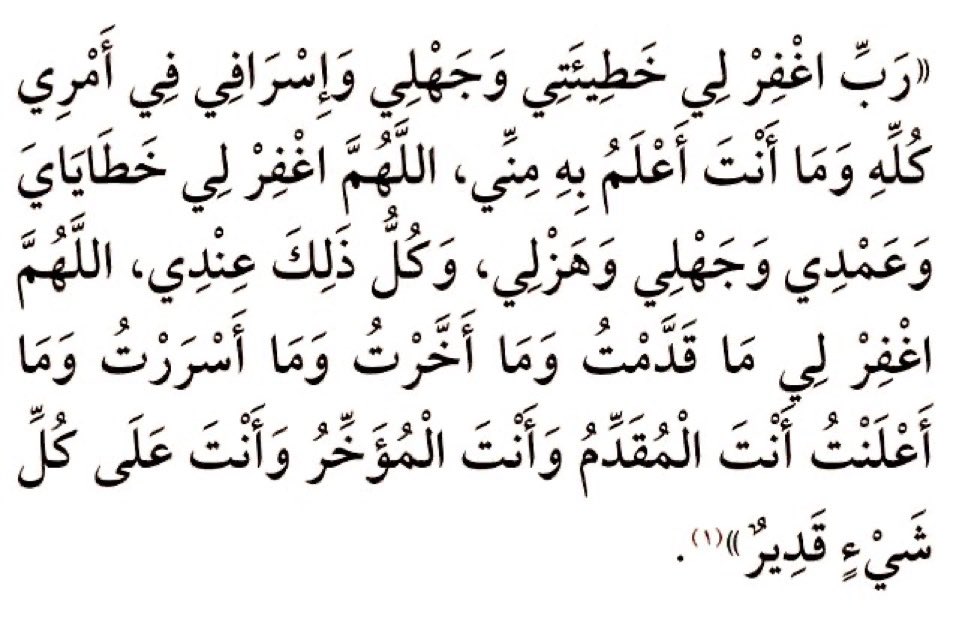 «رَبِّ اغْفِرْ لِي خَطِيئَتِي وَجَهْلِي وَإِسْرَافِي فِي أَمْرِي
كُلِّهِ وَمَا أَنْتَ أَعْلَمُ بِهِ مِنِّي، اللَّهُمَّ اغْفِرْ لِي خَطَايَايَ
وَعَمْدِي وَجَهْلِي وَهَزْلِي، وَكُلُّ ذَلِكَ عِنْدِي، اللَّهُمَّ
اغْفِرْ لِي مَا قَدَّمْتُ وَمَا أَخَّرْتُ وَمَا أَسْرَرْتُ وَمَا
أَعْلَنْتُ أَنْتَ الْمُقَدِّمُ وَأَنْتَ الْمُؤَخِّرُ وَأَنْتَ عَلَى كُلِّ
شَيْءٍ قَدِيرٌ»(١).